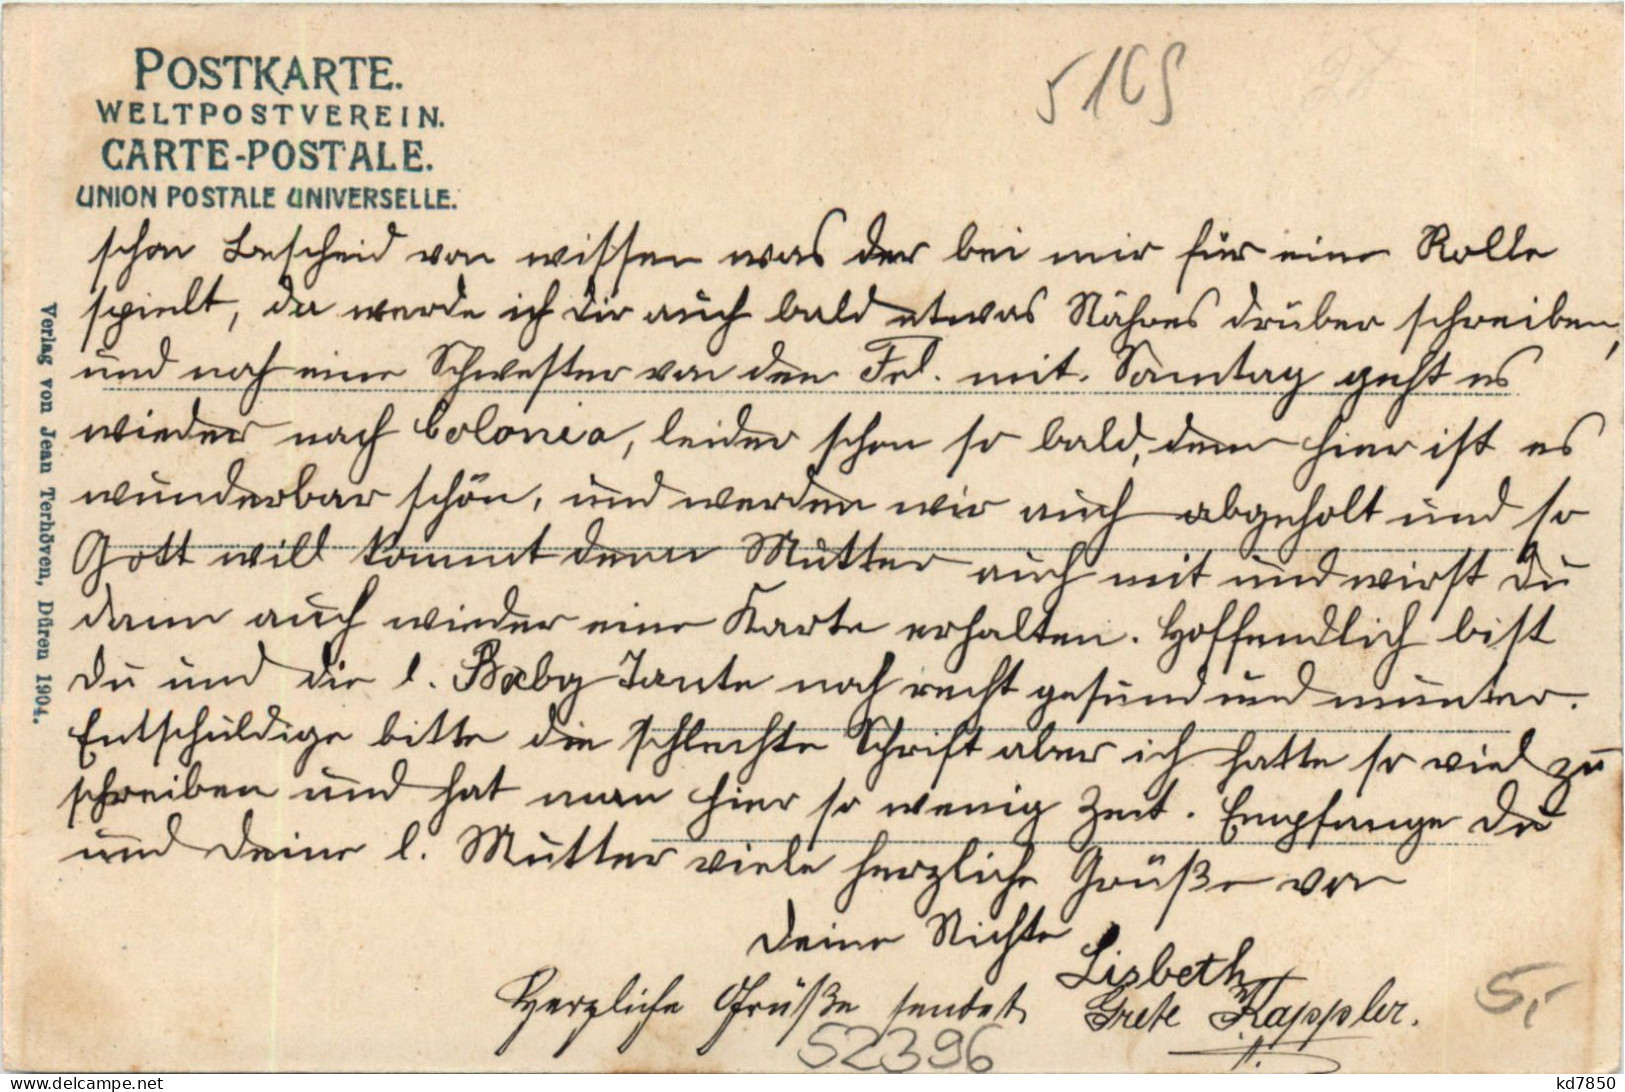 POSTKARTE.
WELTPOSTVEREIN.
CARTE-POSTALE.
UNION POSTALE UNIVERSELLE.
5165
schon Bescheid von wissen was der bei mir für eine Rolle
spielt, da werde ich Dir auch bald etwas Nähres drüber schreiben,
und noch eine Schwester von den Frl. mit. Samtag geht es
wieder nach Colonia, leider schon so bald, denn hier ist es
wunderbar schön, und werden wir auch abgeholt und so
Gott will kommt denn Mutter auch mit und wirst Du
dann auch wieder eine Karte erhalten. Hoffendlich bist
Du und die l. Baby Tante noch recht gesund und munter.
Entschuldige bitte die schlechte Schrift aber ich hatte so viel zu
schreiben und hat man hier so wenig Zeit. Empfange Du
und Deine l. Mutter viele herzliche Grüße von
Deine Nichte
Lisbeth
Herzliche Grüße sendet Grete Kappler.
52396
5,-
Verlag von Jean Terhöven, Düren 1904.
kd7850